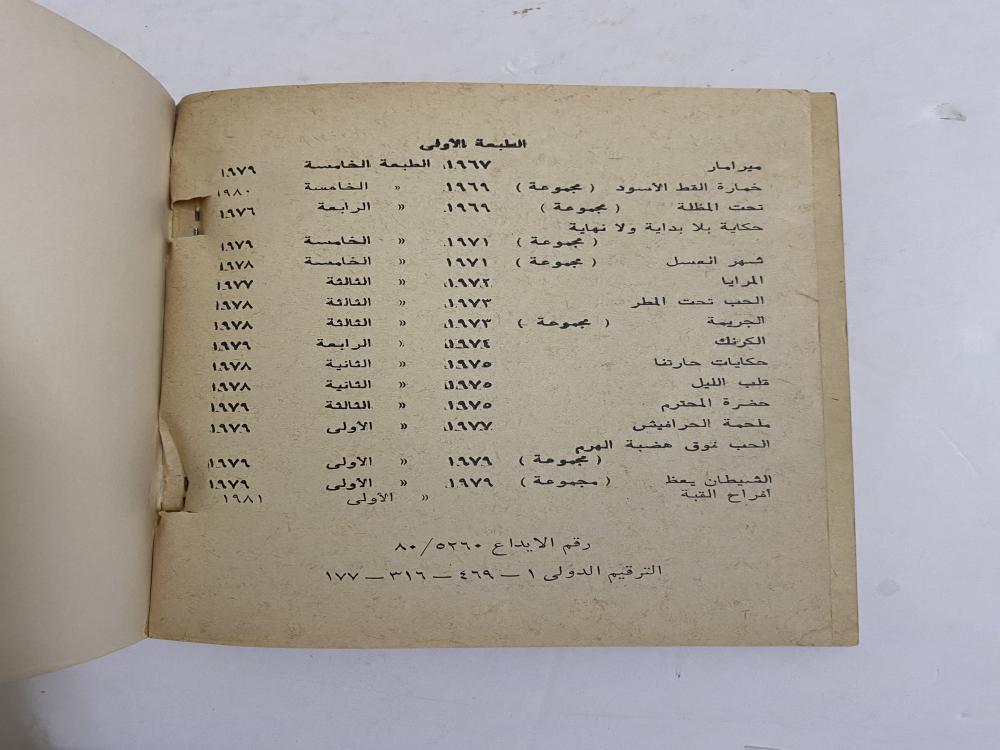 الطبعة الأولى
ميرامار ١٩٦٧ الطبعة الخامسة ١٩٧٩
خمارة القط الأسود ( مجموعة ) ١٩٦٩ » الخامسة ١٩٨٠
تحت المظلة ( مجموعة ) ١٩٦٩ » الرابعة ١٩٧٦
حكاية بلا بداية ولا نهاية
( مجموعة ) ١٩٧١ » الخامسة ١٩٧٩
شهر العسل ( مجموعة ) ١٩٧١ » الخامسة ١٩٧٨
المرايا ١٩٧٢ » الثالثة ١٩٧٧
الحب تحت المطر ١٩٧٣ » الثالثة ١٩٧٨
الجريمة ( مجموعة ) ١٩٧٣ » الثالثة ١٩٧٨
الكرنك ١٩٧٤ » الرابعة ١٩٧٩
حكايات حارتنا ١٩٧٥ » الثانية ١٩٧٨
قلب الليل ١٩٧٥ » الثانية ١٩٧٨
حضرة المحترم ١٩٧٥ » الثالثة ١٩٧٩
ملحمة الحرافيش ١٩٧٧ » الأولى ١٩٧٩
الحب فوق هضبة الهرم
( مجموعة ) ١٩٧٩ » الأولى ١٩٧٩
الشيطان يعظ ( مجموعة ) ١٩٧٩ » الأولى ١٩٧٩
أفراح القبة » الأولى ١٩٨١
رقم الايداع ٨٠/٥٢٦٠
الترقيم الدولى ١ – ٤٦٩ – ٣١٦ – ١٧٧